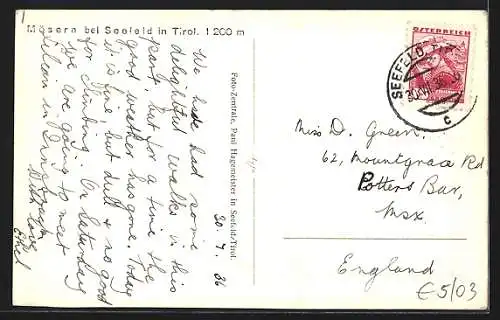 Mösern bei Seefeld in Tirol. 1200 m
20. 7. 36
We have had some
delightful walks in this
part, but for a time the
good weather has gone. Today
it is fine but dull & no good
for climbing. On Saturday
we are going to meet
Lilian in Innsbruck.
With love,
Ethel
Foto-Zentrale, Paul Hagemeister in Seefeld/Tirol.
ÖSTERREICH
SEEFELD
c
Miss D. Green.
62, Mountgrace Rd
Potters Bar,
Msx.
England
€ 5/03